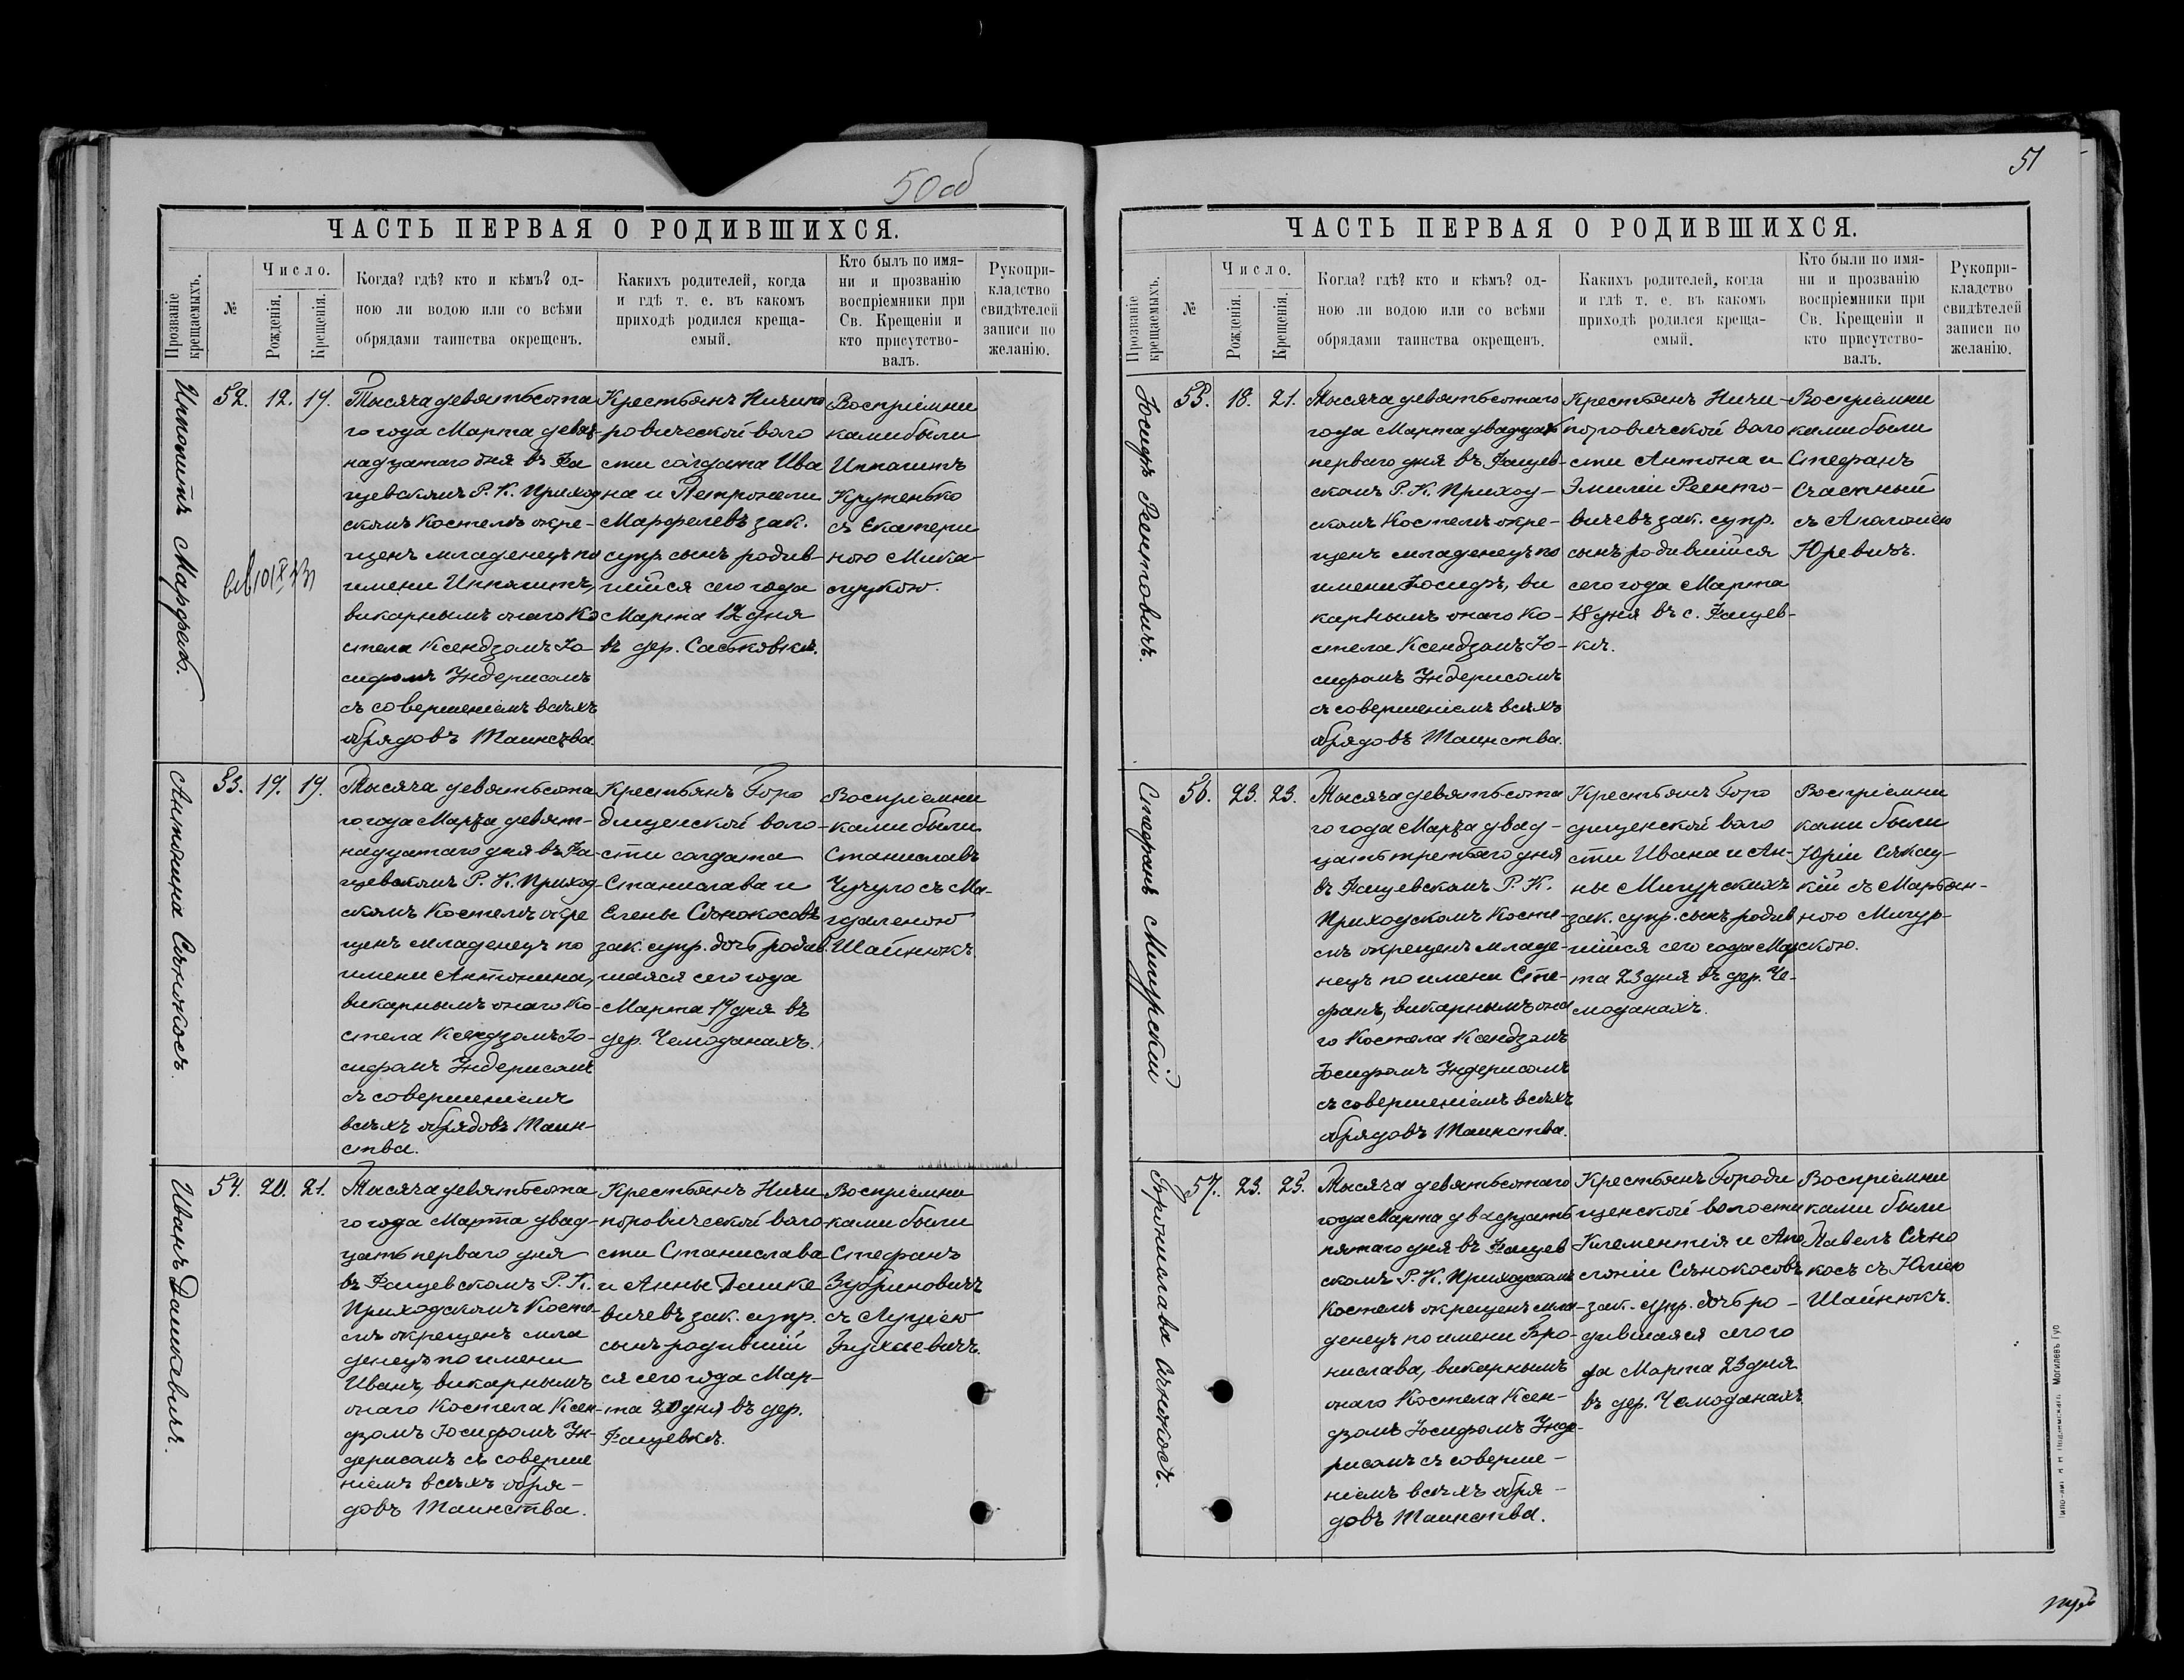 50 об
ЧАСТЬ ПЕРВАЯ О РОДИВШИХСЯ.
Прозваніе крещаемыхъ.
№
Число.
Рожденія.
Крещенія.
Когда? гдѣ? кто и кѣмъ? од-
ною ли водою или со всѣми
обрядами таинства окрещенъ.
Какихъ родителей, когда
и гдѣ т. е. въ какомъ
приходѣ родился креща-
емый.
Кто былъ по имя-
ни и прозванію
воспріемники при
Св. Крещеніи и
кто присутство-
валъ.
Рукопри-
кладство
свидѣтелей
записи по
желанію.
Ипполитъ Марфелъ.
52.
12.
19.
Тысяча девятьсота
го года Марта девят-
надцатаго дня въ Фа
щевскомъ Р. К. Приход
скомъ Костелѣ окре-
щенъ младенецъ по
имени Ипполитъ,
викарнымъ онаго Ко
стела Ксендзомъ Іо-
сифомъ Эндерисомъ
съ совершеніемъ всѣхъ
обрядовъ Таинства.
Крестьянъ Ничипо
ровической воло
сти солдата Ива
на и Петронели
Марфелевъ зак.
супр. сынъ родив-
шійся сего года
Марта 12 дня
въ дер. Саськовкѣ.
Воспріемни
ками были
Ипполитъ
Крутенько
съ Екатери
ною Мика-
Антонина Сѣнокосъ.
53.
17.
19.
Тысяча девятьсота
го года Марта девят-
надцатаго дня въ Фа-
щевскомъ Р. К. Приход-
скомъ Костелѣ окре
щенъ младенецъ по
имени Антонина,
викарнымъ онаго Ко-
стела Ксендзомъ Іо-
сифомъ Эндерисомъ
съ совершеніемъ
всѣхъ обрядовъ Таин-
ства.
Крестьянъ Горо
дищенской воло-
сти солдата
Станислава и
Елены Сѣнокосовъ
зак. супр. дочь родив-
шаяся сего года
Марта 17 дня въ
дер. Чемоданахъ.
Воспріемни
ками были
Станиславъ
Чучуло съ Ма-
гдаленою
Шайнюкъ.
Иванъ Дашкевичъ.
54.
20.
21.
Тысяча девятьсота
го года Марта двад-
цать перваго дня
въ Фащевскомъ Р. К.
Приходскомъ Косте-
лѣ окрещенъ мла
денецъ по имени
Иванъ, викарнымъ
онаго Костела Ксен-
дзомъ Іосифомъ Эн-
дерисомъ съ соверше
ніемъ всѣхъ обря-
довъ Таинства.
Крестьянъ Ничи
поровической воло
сти Станислава
и Анны Дашке
вичевъ зак. супр.
сынъ родившій
ся сего года Мар-
та 20 дня въ дер.
Фащевкѣ.
Воспріемни
ками были
Стефанъ
Зубриновичъ
съ Луціею
51
ЧАСТЬ ПЕРВАЯ О РОДИВШИХСЯ.
Прозваніе крещаемыхъ.
№
Число.
Рожденія.
Крещенія.
Когда? гдѣ? кто и кѣмъ? од-
ною ли водою или со всѣми
обрядами таинства окрещенъ.
Какихъ родителей, когда
и гдѣ т. е. въ какомъ
приходѣ родился креща-
емый.
Кто были по имя-
ни и прозванію
воспріемники при
Св. Крещеніи и
кто присутство-
валъ.
Рукопри-
кладство
свидѣтелей
записи по
желанію.
Іосифъ Реентовичъ.
55.
18.
21.
Тысяча девятьсотаго
года Марта двадцать
перваго дня въ Фащев-
скомъ Р. К. Приход-
скомъ Костелѣ окре-
щенъ младенецъ по
имени Іосифъ, ви
карнымъ онаго Ко-
стела Ксендзомъ Іо-
сифомъ Эндерисомъ
съ совершеніемъ всѣхъ
обрядовъ Таинства.
Крестьянъ Ничи-
поровичской воло
сти Антона и
Эмиліи Реенто-
вичевъ зак. супр.
сынъ родившійся
сего года Марта
18 дня въ с. Фащев-
кѣ.
Воспріемни
ками были
Стефанъ
Счастный
съ Аполоніею
Юревичъ.
Стефанъ Мигурскій
56.
23.
23.
Тысяча девятьсота
го года Марта двад-
цать третьяго дня
въ Фащевскомъ Р. К.
Приходскомъ Косте-
лѣ окрещенъ младе-
нецъ по имени Сте-
фанъ, викарнымъ она
го Костела Ксендзомъ
Іосифомъ Эндерисомъ
съ совершеніемъ всѣхъ
обрядовъ Таинства.
Крестьянъ Горо
дищенской воло
сти Ивана и Ан-
ны Мигурскихъ
зак. супр. сынъ родив
шійся сего года Мар
та 23 дня въ дер. Че-
моданахъ.
Воспріемни
ками были
Юрій
кій съ Марьян-
ною Мигур-
скою.
Бронислава Сѣнокосъ.
57.
23.
25.
Тысяча девятьсотаго
года Марта двадцать
пятаго дня въ Фащев
скомъ Р. К. Приходскомъ
Костелѣ окрещенъ мла-
денецъ по имени Бро-
нислава, викарнымъ
онаго Костела Ксен-
дзомъ Іосифомъ Энде-
рисомъ съ соверше-
ніемъ всѣхъ обря-
довъ Таинства.
Крестьянъ Городи
щенской волости
Клементія и Апо
лоніи Сѣнокосовъ
зак. супр. дочь ро-
дившаяся сего го
да Марта 23 дня
въ дер. Чемоданахъ.
Воспріемни
ками были
Павелъ Сѣно
косъ съ Юліею
Шайнюкъ.